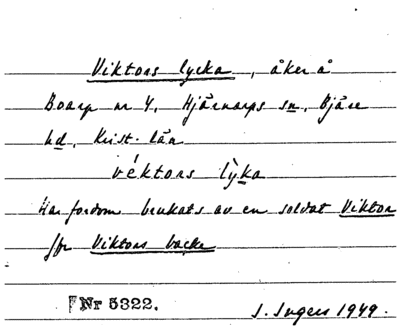 Viktors lycka, åker å
Boarp nr 4, Hjärnarps sn, Bjäre
hd, Krist. län
véktors lỳka
Har fordom brukats av en soldat Viktor
Jfr Viktors backe
Nr 5322.
I. Ingers 1949.